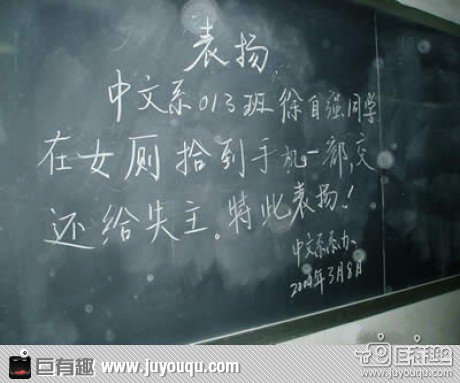 表扬
中文系013班徐自强同学
在女厕拾到手机一部,交
还给失主.特此表扬!
中文系系办
3月8日
巨有趣 www.juyouqu.com
巨有趣